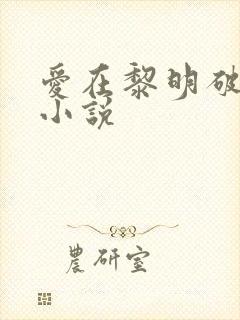 愛在黎明破
小説
農研室